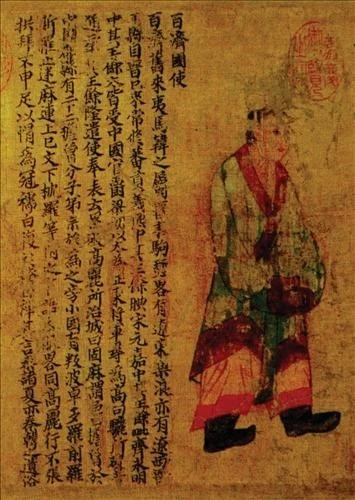 百濟國使
百濟舊來夷馬韓之屬晉末駒麗略有遼東樂浪亦有遼西晉
平縣自晉已來常修蕃貢義熙中其王餘腆宋元嘉中其王餘毗齊永明
中其王餘太皆受中國官爵梁初以太為征東將軍尋為高句驪所破
通二年其王餘隆遣使奉表云累破高麗所治城曰固麻謂邑曰檐魯於
中國郡縣有二十二檐魯分子弟宗族為之旁小國有叛波卓多羅前羅
斯羅止迷麻連上巳文下枕羅等附之言語衣服略同高麗行不張
拱拜不申足以帽為冠襦曰複衫袴曰褌其言參諸夏亦秦韓之遺俗